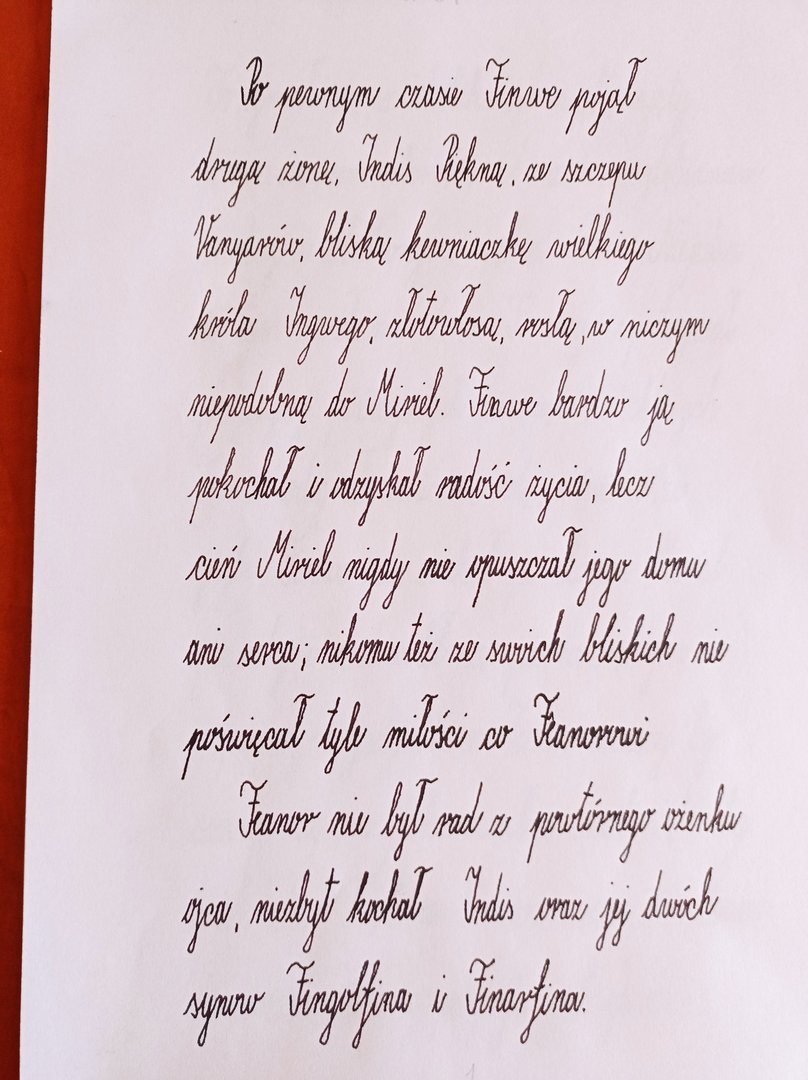 Po pewnym czasie Finwe pojął
drugą żonę, Indis Piękną, ze szczepu
Vanyarów, bliską kewniaczkę wielkiego
króla Ingwego, złotowłosą, rosłą, w niczym
niepodobną do Miriel. Finwe bardzo ją
pokochał i odzyskał radość życia, lecz
cień Miriel nigdy nie opuszczał jego domu
ani serca; nikomu też ze swoich bliskich nie
poświęcał tyle miłości co Feanorowi
Feanor nie był rad z powtórnego ożenku
ojca, niezbyt kochał Indis oraz jej dwóch
synów Fingolfina i Finarfina.